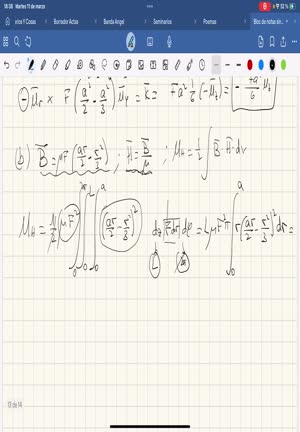 18:38 Martes 11 de marzo 52 %
arios Y Cosas Borrador Actas Banda Angel Seminarios Poemas Bloc de notas sin...
⊖ μ̄r × F (a²/2 - a²/3) μ̄φ = k̄ = Fa² 1/6 (-μ̄z) = - Fa²/6 μ̄z
(b) B̄ = μF (ar/2 - r²/3) ; H̄ = B̄/μ ; μH = 1/2 ∫ B̄ · H̄ · dv
μH = 1/2 μF² ∫₀ ∫₀ ∫₀ᵃ (ar/2 - r²/3)² dz r dr dφ = LμF²π ∫₀ᵃ r [ar/2 - r²/3]² dr =
L 2π
13 de 14